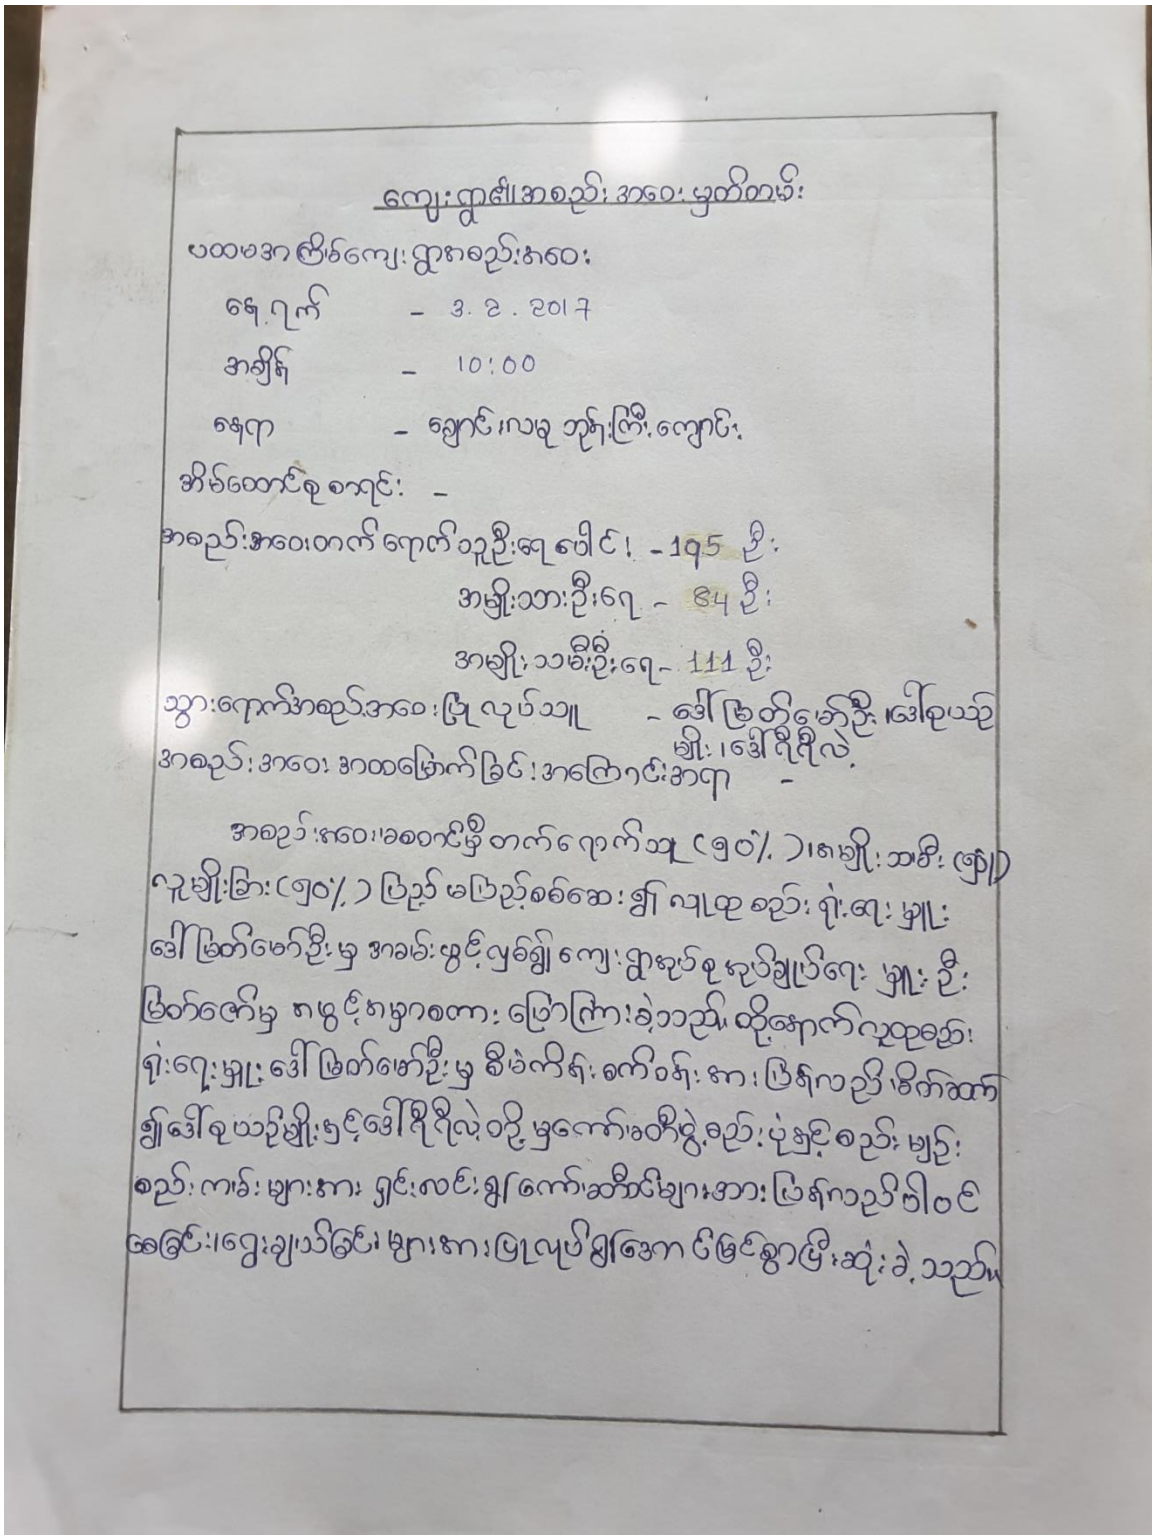 ကျေးရွာ၏အစည်းအဝေးမှတ်တမ်း
ပထမအကြိမ်ကျေးရွာအစည်းအဝေး
နေ့ရက် - 3.2.2017
အချိန် - 10:00
နေရာ - ချောင်းလမု ဘုန်းကြီးကျောင်း
အိမ်ထောင်စုစာရင်း -
အစည်းအဝေးတက်ရောက်သူဦးရေပေါင်း - 195 ဦး
အမျိုးသားဦးရေ - 84 ဦး
အမျိုးသမီးဦးရေ - 111 ဦး
သွားရောက်အစည်းအဝေးပြုလုပ်သူ - ဒေါ်မြတ်မော်ဦး၊ဒေါ်စုယဉ်
မျိုး၊ဒေါ်ရီရီလဲ့
အစည်းအဝေး အထမြောက်ခြင်းအကြောင်းအရာ -
အစည်းအဝေးအစတွင် တက်ရောက်သူ (၅၀%)၊အမျိုးသမီး (၅၀%)
လူမျိုးခြား (၅၀%) ပြည့် မပြည့်စစ်ဆေး၍ လူထုစည်းရုံးရေးမှူး
ဒေါ်မြတ်မော်ဦးမှ အခမ်းဖွင့်လှစ်၍ ကျေးရွာအုပ်စုအုပ်ချုပ်ရေးမှူး ဦး
မြတ်ဇော်မှ အဖွင့်အမှာစကား ပြောကြားခဲ့သည်။ ထို့နောက်လူထုစည်း
ရုံးရေးမှူး ဒေါ်မြတ်မော်ဦးမှ စီမံကိန်းစက်ဝန်းအား ပြန်လည်မိတ်ဆက်
၍ ဒေါ်စုယဉ်မျိုးနှင့်ဒေါ်ရီရီလဲ့တို့မှကော်မတီဖွဲ့စည်းပုံနှင့်စည်းမျဉ်း
စည်းကမ်းများအား ရှင်းလင်း၍ ကော်မတီဝင်များအား ပြန်လည်ပါဝင်
စေခြင်း၊ရွေးချယ်ခြင်းများအားပြုလုပ်၍အောင်မြင်စွာပြီးဆုံးခဲ့သည်။